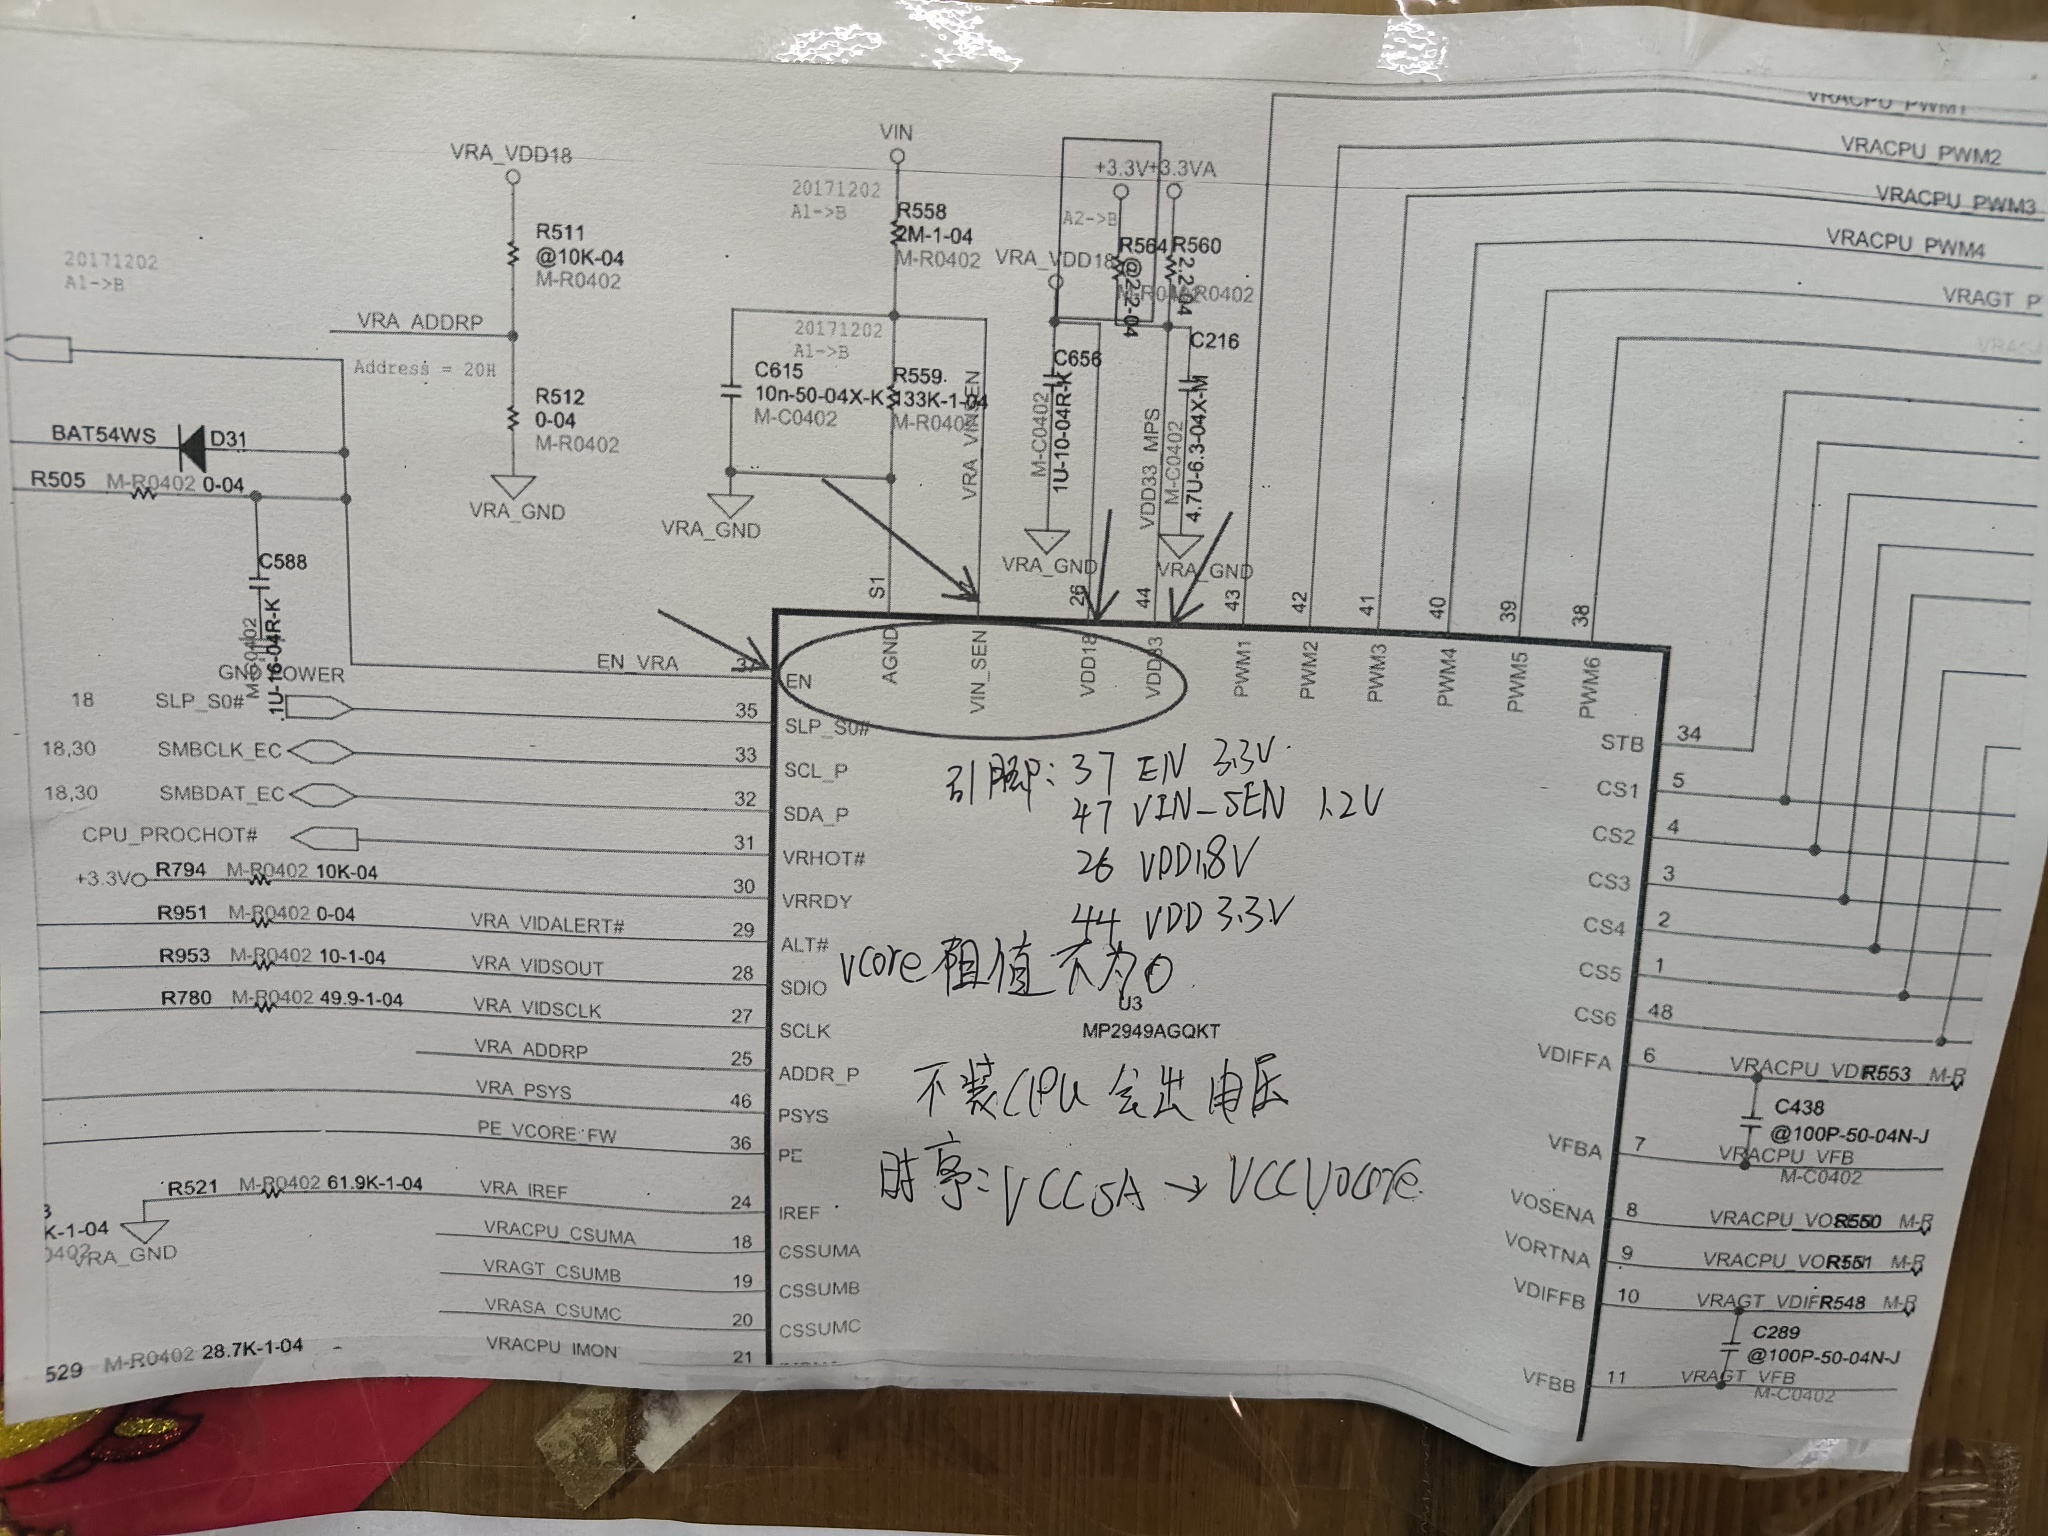 VRACPU_PWM1
VIN
VRACPU_PWM2
VRA_VDD18
+3.3V+3.3VA
20171202
A1->B
VRACPU_PWM3
R558
2M-1-04
M-R0402
A2->B
R511
@10K-04
M-R0402
R564
@2.2-04
R560
2.2-04
M-R0402
VRACPU_PWM4
20171202
A1->B
VRA_VDD18
VRAGT_P
VRA_ADDRP
20171202
A1->B
C216
4.7U-6.3-04X-M
M-C0402
Address = 20H
C615
10n-50-04X-K
M-C0402
R559
133K-1-04
M-R0402
C656
1U-10-04R-K
M-C0402
R512
0-04
M-R0402
BAT54WS
D31
VRA_VINSEN
VDD33_MPS
R505 M-R0402 0-04
VRA_GND
VRA_GND
VRA_GND
VRA_GND
C588
.1U-16-04R-K
M-C0402
S1
26
44
43
42
41
40
39
38
EN_VRA
37
EN
AGND
VIN_SEN
VDD18
VDD33
PWM1
PWM2
PWM3
PWM4
PWM5
PWM6
GND_POWER
18 SLP_S0# 35 SLP_S0#
18,30 SMBCLK_EC 33 SCL_P
18,30 SMBDAT_EC 32 SDA_P
CPU_PROCHOT# 31 VRHOT#
+3.3V R794 M-R0402 10K-04 30 VRRDY
R951 M-R0402 0-04 VRA_VIDALERT# 29 ALT#
R953 M-R0402 10-1-04 VRA_VIDSOUT 28 SDIO
R780 M-R0402 49.9-1-04 VRA_VIDSCLK 27 SCLK
VRA_ADDRP 25 ADDR_P
VRA_PSYS 46 PSYS
PE_VCORE_FW 36 PE
R521 M-R0402 61.9K-1-04 VRA_IREF 24 IREF
K-1-04
VRA_GND
VRACPU_CSUMA 18 CSSUMA
VRAGT_CSUMB 19 CSSUMB
VRASA_CSUMC 20 CSSUMC
529 M-R0402 28.7K-1-04 VRACPU_IMON 21
引脚: 37 EN 3.3V
47 VIN_SEN 1.2V
26 VDD1.8V
44 VDD 3.3V
Vcore阻值不为0
U3
MP2949AGQKT
不装CPU会出电压
时序: VCCSA → VCCVocore
STB 34
CS1 5
CS2 4
CS3 3
CS4 2
CS5 1
CS6 48
VDIFFA 6 VRACPU_VDI R553 M-R
C438
@100P-50-04N-J
M-C0402
VFBA 7 VRACPU_VFB
VOSENA 8 VRACPU_VO R550 M-R
VORTNA 9 VRACPU_VO R551 M-R
VDIFFB 10 VRAGT_VDIF R548 M-R
C289
@100P-50-04N-J
M-C0402
VFBB 11 VRAGT_VFB